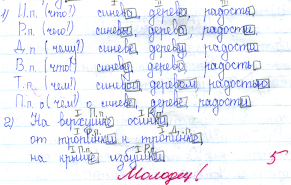 1) И.п. (что?) синева, дерево, радость
Р.п. (чего?) синевы, дерева, радости
Д.п. (чему?) синеве, дереву, радости
В.п. (что?) синеву, дерево, радость
Т.п. (чем?) синевой, деревом, радостью
П.п. о (чём?) о синеве, дереве, радости
2) На верхушке осинки
от тропинки к тропинке
на крыше избушки
Молодец! 5